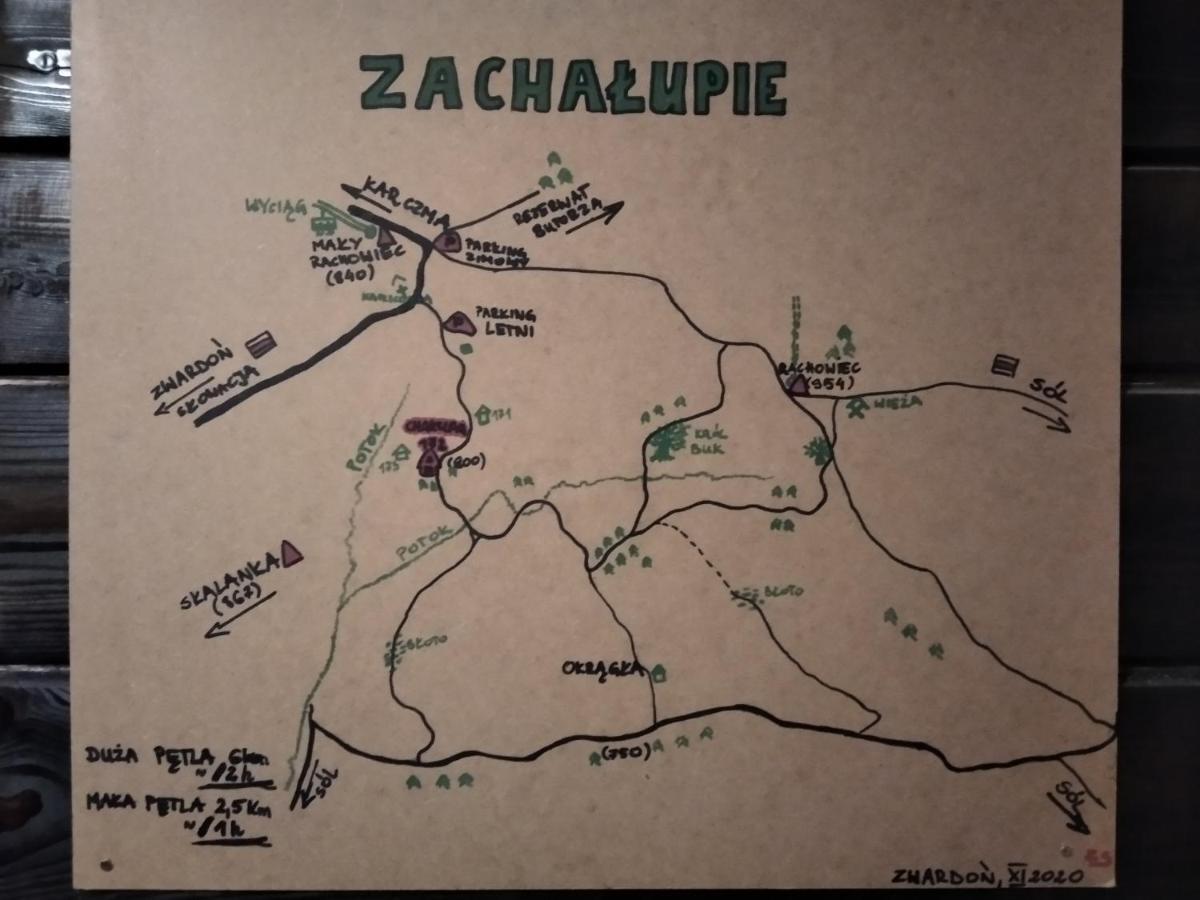 ZACHAŁUPIE
KARCZMA
WYCIĄG
REZERWAT
BUTORZA
MAŁY
RACHOWIEC
(840)
P
PARKING
ZIMOWY
P
PARKING
LETNI
ZWARDOŃ
SŁOWACJA
RACHOWIEC
(954)
SÓL
WIEŻA
171
CHAŁUPA
172
(800)
173
POTOK
KRÓL
BUK
POTOK
SKALANKA
(867)
BŁOTO
BŁOTO
OKRĄGŁA
(750)
DUŻA PĘTLA 6km
~/2h
MAŁA PĘTLA 2,5km
~/1h
SÓL
SÓL
ES
ZWARDOŃ, XI 2020